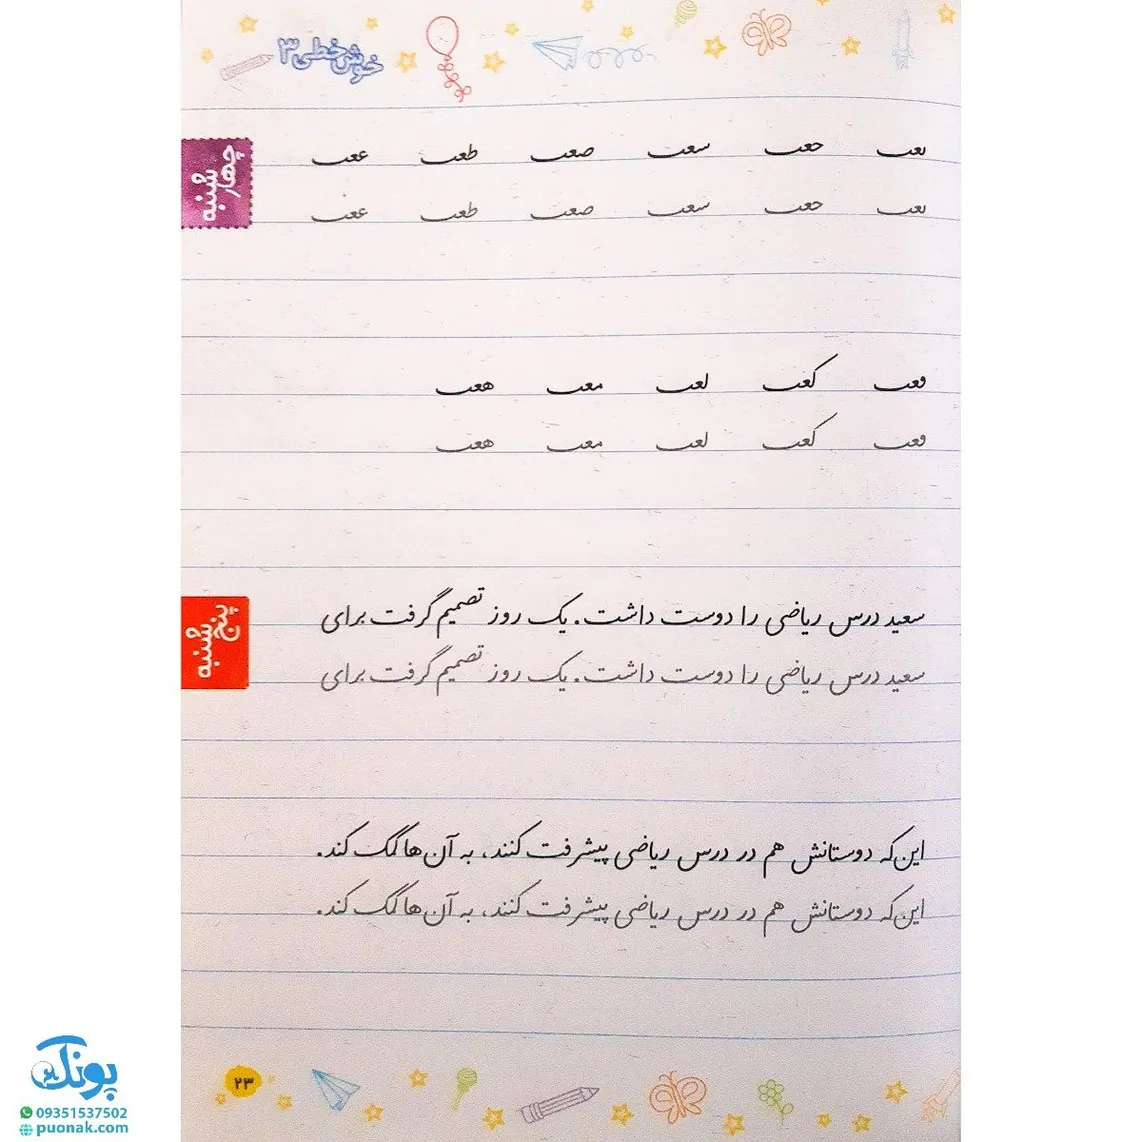 خوش‌خطی ۳
چهارشنبه
ىعب حعب سعب صعب طعب ععب
ىعب حعب سعب صعب طعب ععب
فعب کعب لعب معب هعب
فعب کعب لعب معب هعب
پنج‌شنبه
سعید درس ریاضی را دوست داشت. یک روز تصمیم گرفت برای
سعید درس ریاضی را دوست داشت. یک روز تصمیم گرفت برای
این‌که دوستانش هم در درس ریاضی پیشرفت کنند، به آن‌ها کمک کند.
این‌که دوستانش هم در درس ریاضی پیشرفت کنند، به آن‌ها کمک کند.
۲۳
پونک
09351537502
puonak.com